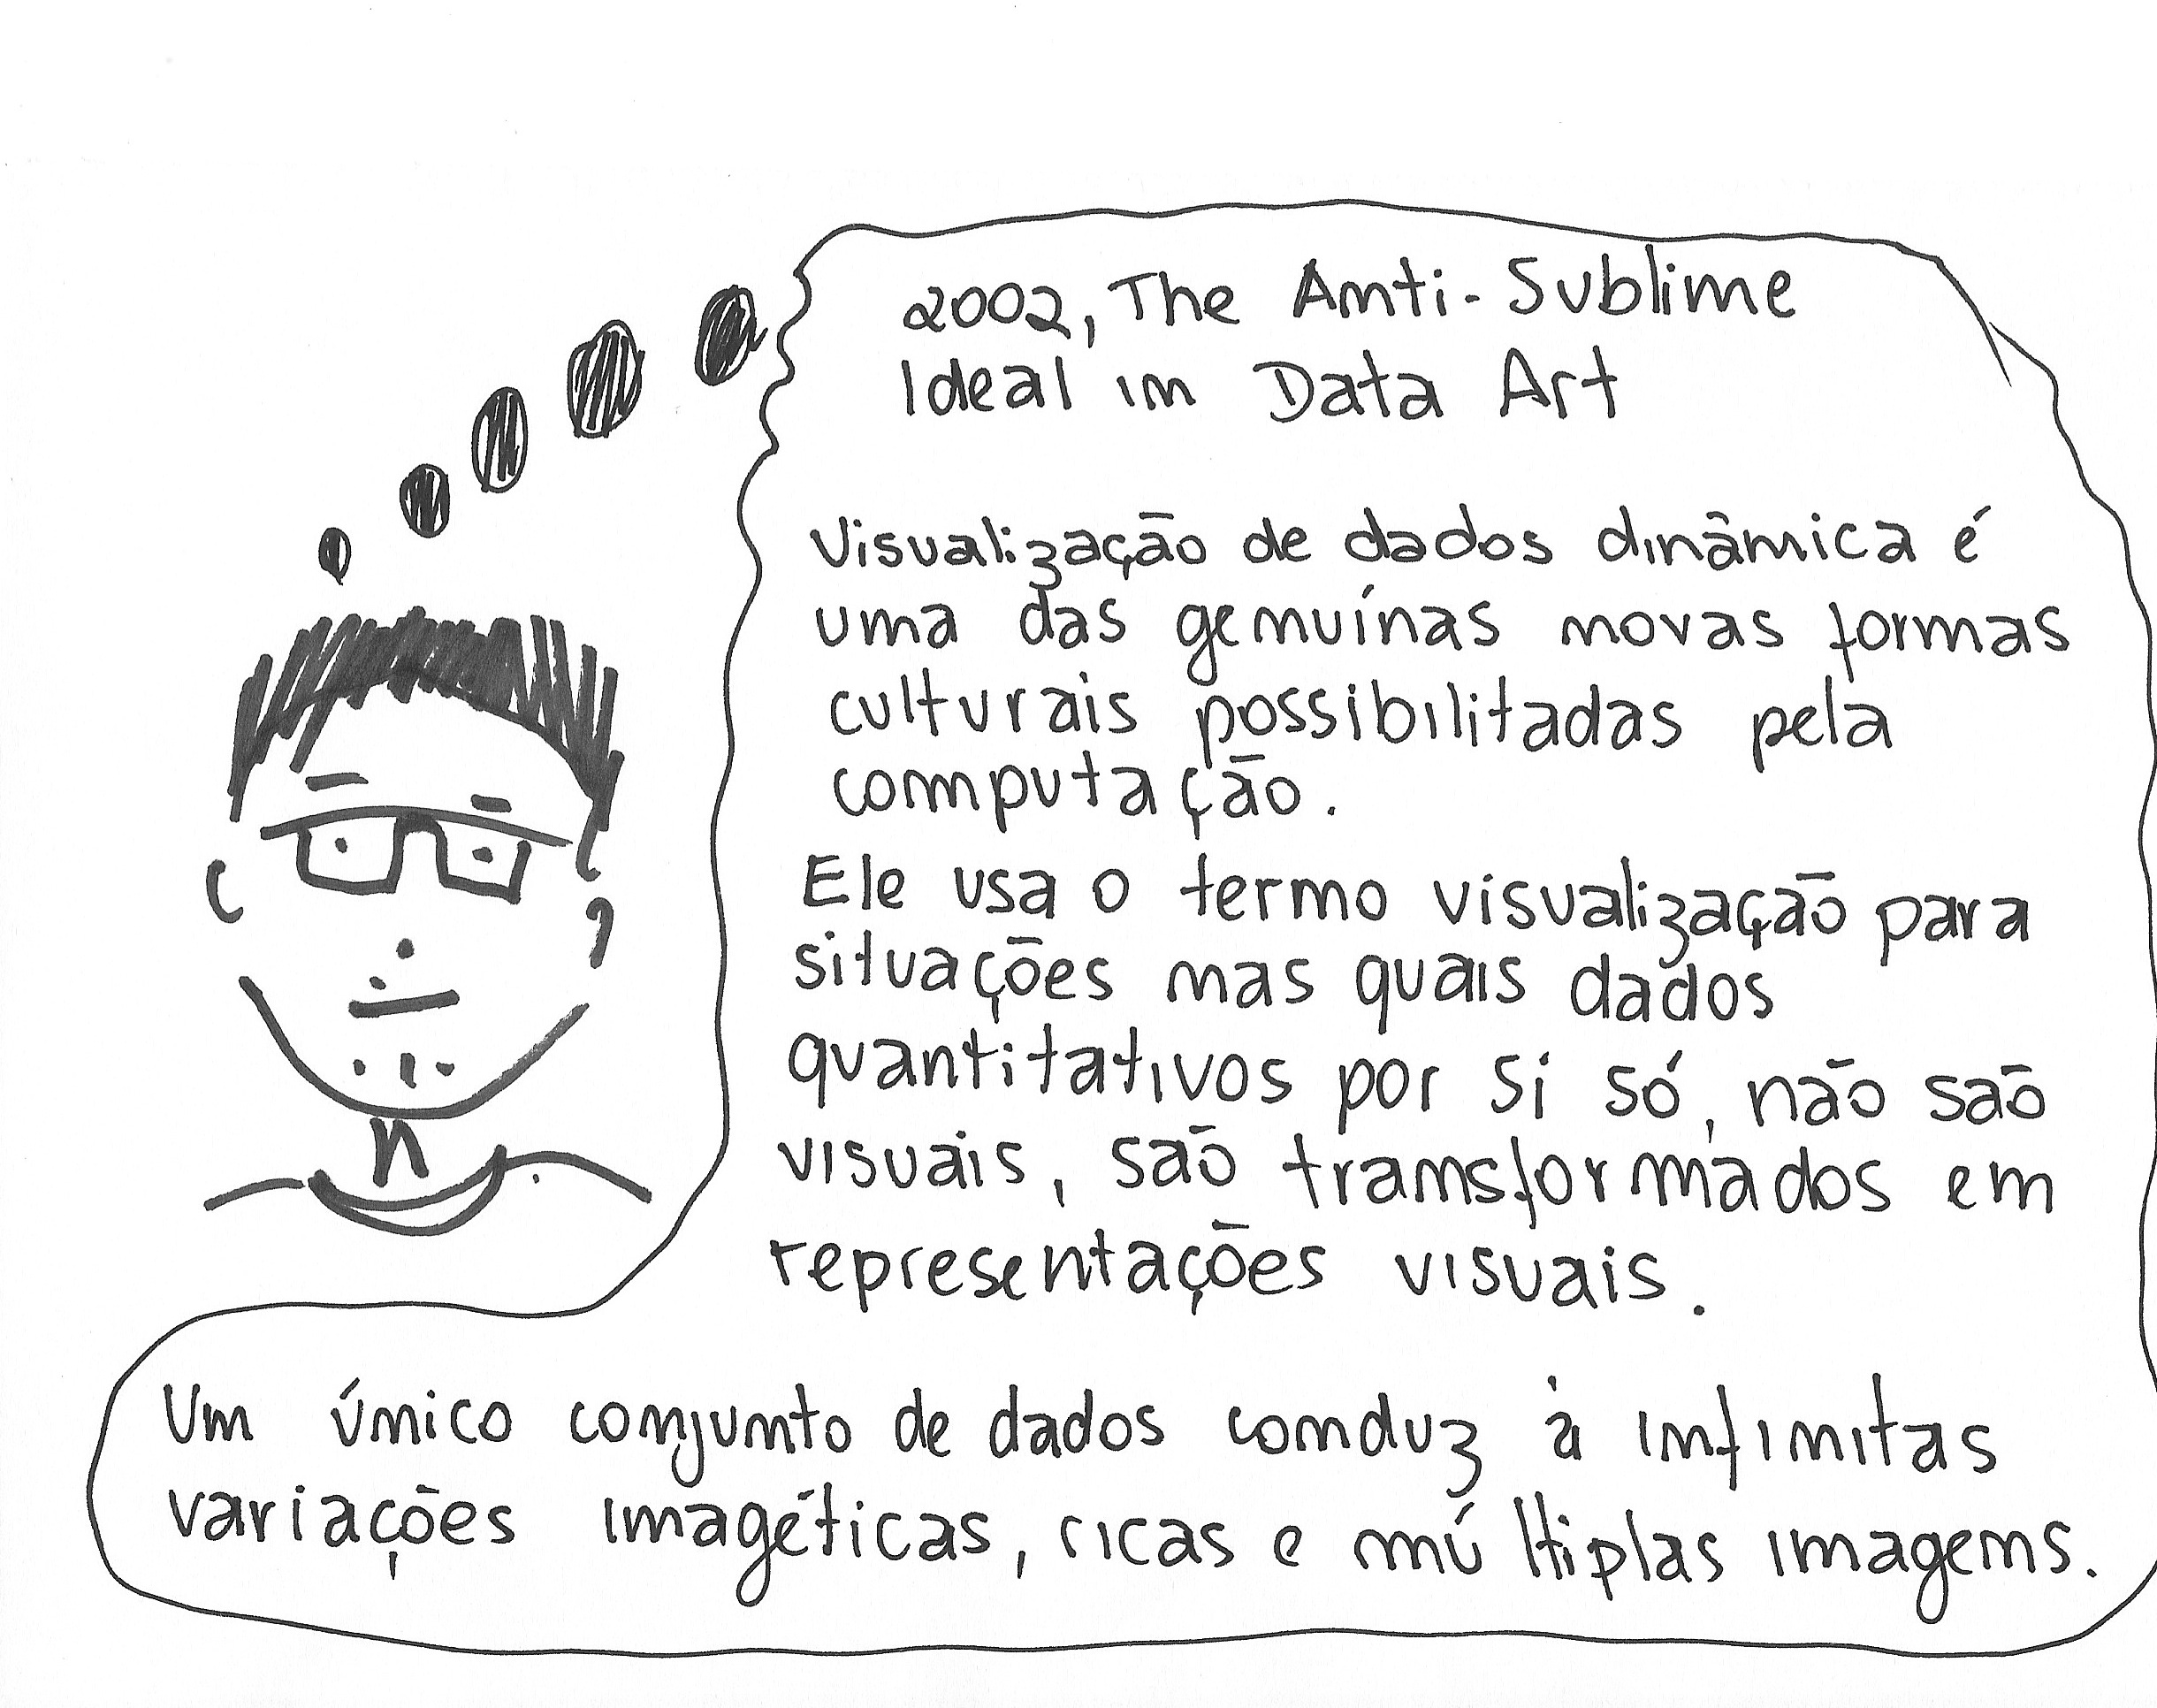 2002, The Anti-Sublime
Ideal in Data Art
Visualização de dados dinâmica é
uma das genuínas novas formas
culturais possibilitadas pela
computação.
Ele usa o termo visualização para
situações nas quais dados
quantitativos por si só, não são
visuais, são transformados em
representações visuais.
Um único conjunto de dados conduz à infinitas
variações imagéticas, ricas e múltiplas imagens.